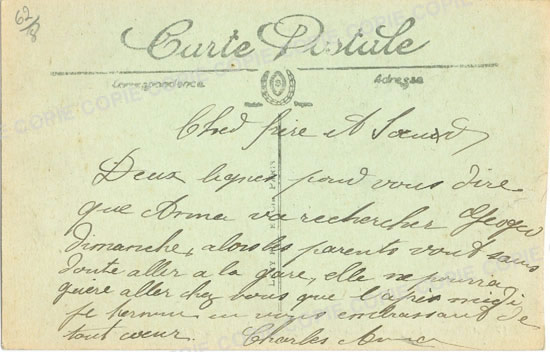 62/8
Carte Postale
Correspondance Adresse
Cher frère et Soeur
Deux lignes pour vous dire
que Anna va rechercher
dimanche, alors les parents vont sans
doute aller a la gare, elle ne pourra
guere aller chez vous que l'apres midi
je termine en vous embrassant de
tout coeur. Charles Anna
COPIE COPIE COPIE COPIE COPIE